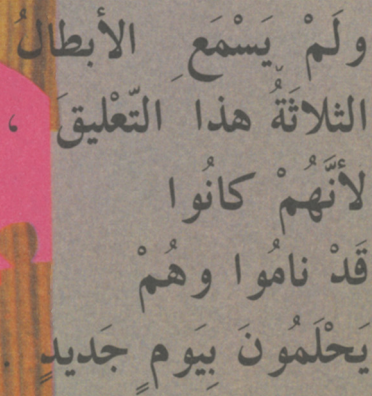 ولَمْ يَسْمَعِ الأبطالُ
الثلاثَةُ هذا التّعْليقَ ،
لأنَّهُمْ كانُوا
قَدْ نامُوا وهُمْ
يَحْلَمُونَ بِيَومٍ جَديدٍ .